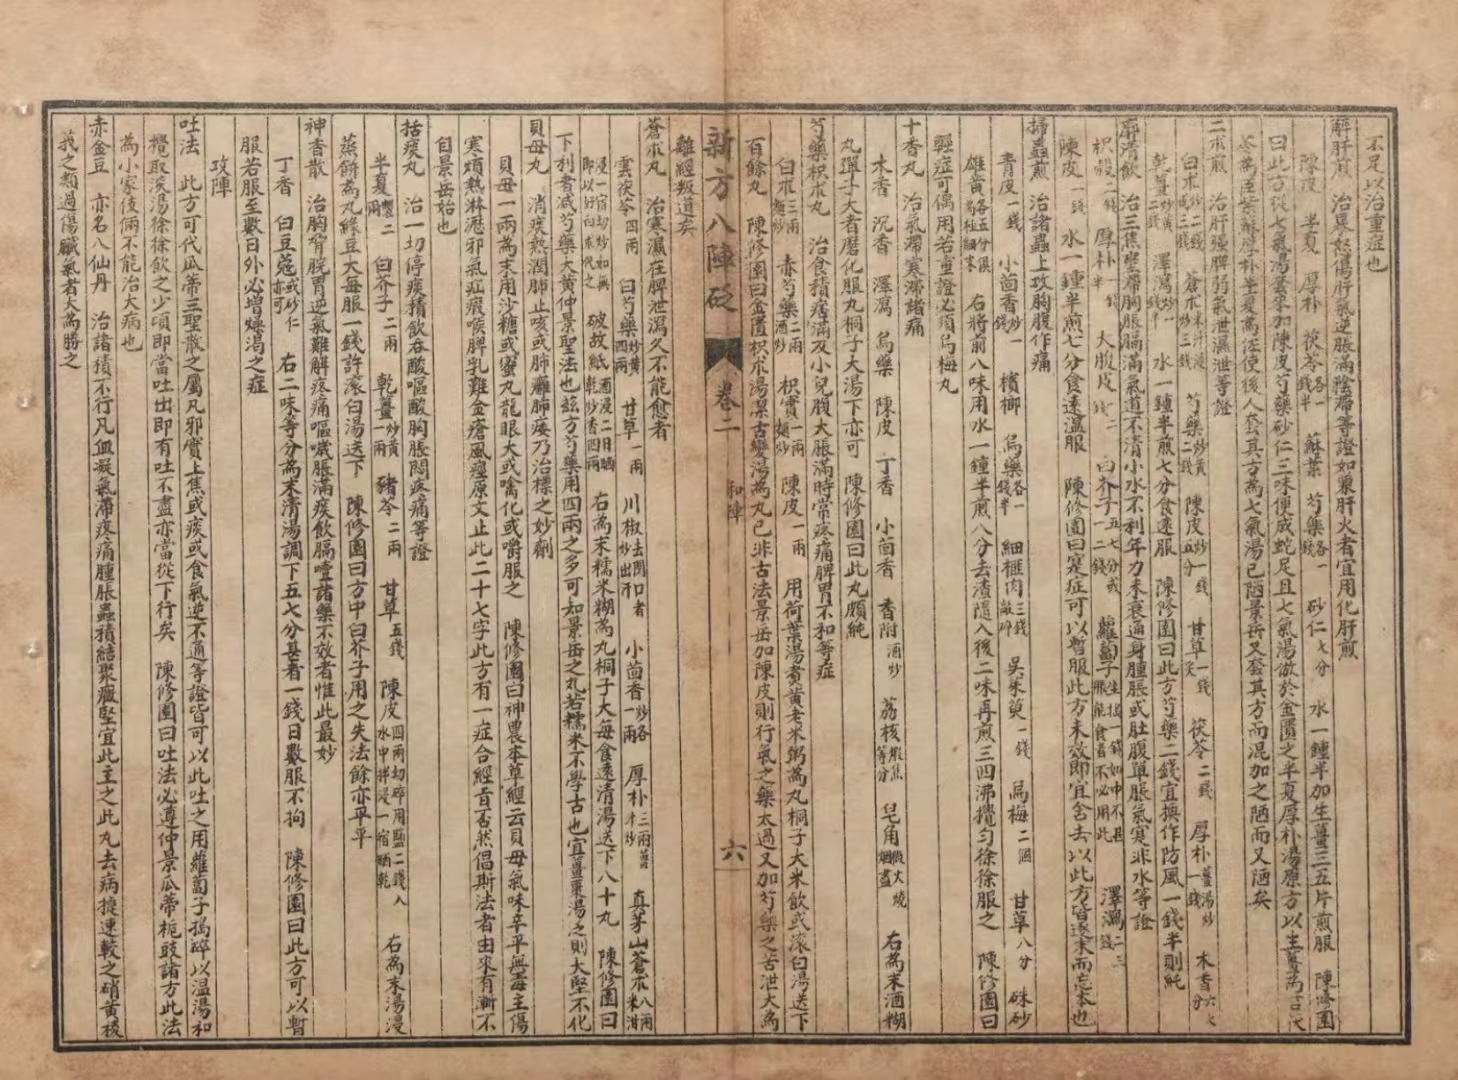 不足以治重症也
解肝煎　治暴怒傷肝氣逆脹滿陰滯等證如兼肝火者宜用化肝煎
陳皮　半夏　厚朴　茯苓各一錢半　蘇葉　芍藥各一錢　砂仁七分　水一鍾半加生薑三五片煎服　陳修園
曰此方從七氣湯套來加陳皮芍藥砂仁三味便成蛇足且七氣湯倣於金匱之半夏厚朴湯原方以生薑為君茯
苓為臣紫蘇厚朴半夏為佐使後人套其方為七氣湯已陋景岳又套其方而混加之陋而又陋矣
二朮煎　治肝強脾弱氣泄濕泄等證
白朮炒二錢或三錢　蒼朮米汁浸炒三錢　芍藥炒黃二錢　陳皮炒一錢五分　甘草一錢炙　茯苓二錢　厚朴薑湯炒一錢　木香六七分
乾薑炒黃二錢　澤瀉炒一錢半　水一鍾半煎七分食遠服　陳修園曰此方芍藥二錢宜換作防風一錢半則純
廓清飲　治三焦壅滯胸脹膈滿氣道不清小水不利年力未衰通身腫脹或肚腹單脹氣寔非水等證
枳殼二錢　厚朴一錢半　大腹皮一二錢　白芥子五七分或一二錢　蘿蔔子生搗一錢如中不甚脹能食者不必用此　澤瀉二三錢
陳皮一錢　水一鍾半煎七分食遠溫服　陳修園曰寔症可以暫服此方未效即宜舍去以此方皆逐末而忘本也
掃蟲煎　治諸蟲上攻胸腹作痛
青皮一錢　小茴香炒一錢　檳榔　烏藥各一錢半　細榧肉三錢敲碎　吳茱萸一錢　烏梅二個　甘草八分　硃砂
雄黃各五分俱為極細末　右將前八味用水一鍾半煎八分去渣隨入後二味再煎三四沸攪勻徐徐服之　陳修園曰
輕症可偶用若重證必須烏梅丸
十香丸　治氣滯寒滯諸痛
木香　沉香　澤瀉　烏藥　陳皮　丁香　小茴香　香附酒炒　荔核煨焦等分　皂角微火燒烟盡　右為末酒糊
丸彈子大者磨化服丸桐子大湯下亦可　陳修園曰此丸頗純
芍藥枳朮丸　治食積痞滿及小兒腹大脹滿時常疼痛脾胃不和等症
白朮二兩麵炒　赤芍藥二兩酒炒　枳實一兩麵炒　陳皮一兩　用荷葉湯煮黃老米粥為丸桐子大米飲或滚白湯送下
百餘丸　陳修園曰金匱枳朮湯潔古變湯為丸已非古法景岳加陳皮則行氣之藥太過又加芍藥之苦泄大為
新方八陣砭　卷二　和陣　六
離經叛道矣
蒼朮丸　治寒濕在脾泄瀉久不能愈者
雲茯苓四兩　白芍藥炒黃四兩　甘草一兩　川椒去閉口者炒出汗　小茴香炒各一兩　厚朴三兩薑汁炒　真茅山蒼朮八兩米泔
浸一宿切炒如無即以好白朮代之　破故紙酒浸二日晒乾炒香四兩　右為末糯米糊為丸桐子大每食遠清湯送下八十丸　陳修園曰
下利者減芍藥大黃仲景聖法也茲方芍藥用四兩之多可如景岳之孟浪糯米不學古也宜薑棗湯之則大堅不化
貝母丸　消痰熱潤肺止咳或肺癰肺痿乃治標之妙劑
貝母一兩為末用沙糖或蜜丸龍眼大或噙化或嚼服之　陳修園曰神農本草經云貝母氣味辛平無毒主傷
寒煩熱淋瀝邪氣疝瘕喉脾乳難金瘡風痙原文止此二十七字此方有一症合經旨否然倡斯法者由來有漸不
自景岳始也
括痰丸　治一切停痰積飲吞酸嘔酸胸脹悶疼痛等證
半夏製二兩　白芥子二兩　乾薑炒黃一兩　豬苓二兩　甘草五錢　陳皮四兩切碎用鹽二錢入水中拌浸一宿晒乾　右為末湯浸
蒸餅為丸綠豆大每服一錢許滚白湯送下　陳修園曰方中白芥子用之失法餘亦平平
神香散　治胸脅脘胃逆氣難解疼痛嘔噦脹滿痰飲膈噎諸藥不效者惟此最妙
丁香　白豆蔻或砂仁亦可　右二味等分為末清湯調下五七分甚者一錢日數服不拘　陳修園曰此方可以暫
服若服至數日外必增燥渴之症
攻陣
吐法　此方可代瓜蒂三聖散之屬凡邪實上焦或痰或食氣逆不通等證皆可以此吐之用蘿蔔子搗碎以溫湯和
攪取淡湯徐徐飲之少頃即當吐出即有吐不盡亦當從下行矣　陳修園曰吐法必遵仲景瓜蒂梔豉諸方此法
為小家伎倆不能治大病也
赤金豆　亦名八仙丹　治諸積不行凡血凝氣滯疼痛腫脹蟲積結聚癥堅宜此主之此丸去病捷速較之硝黃稜
莪之類過傷臟氣者大為勝之